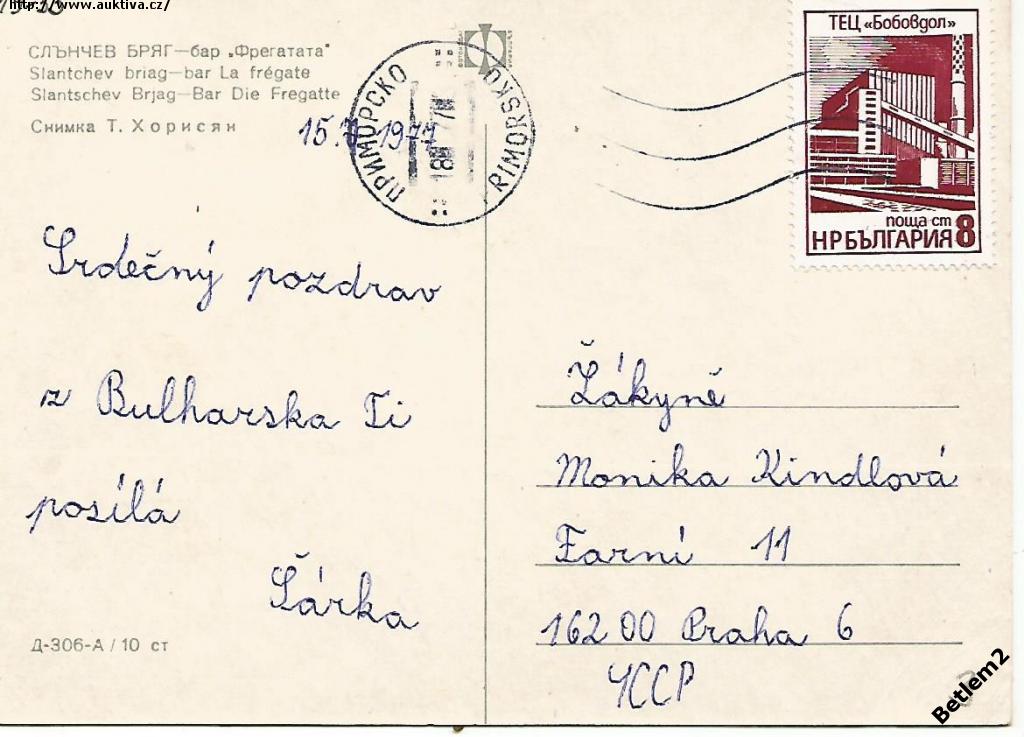 http://www.auktiva.cz/
СЛЪНЧЕВ БРЯГ—бар „Фрегатата"
Slantchev briag—bar La frégate
Slantschev Brjag—Bar Die Fregatte
Снимка Т. Хорисян
ПРИМОРСКО
RIMORSKO
ТЕЦ «Бобовдол»
поща ст
НРБЪЛГАРИЯ 8
Srdečný pozdrav
z Bulharska Ti
posílá
Šárka
Žákyně
Monika Kindlová
Farní 11
162 00 Praha 6
ЧССР
Д-306-А / 10 ст
Betlem2